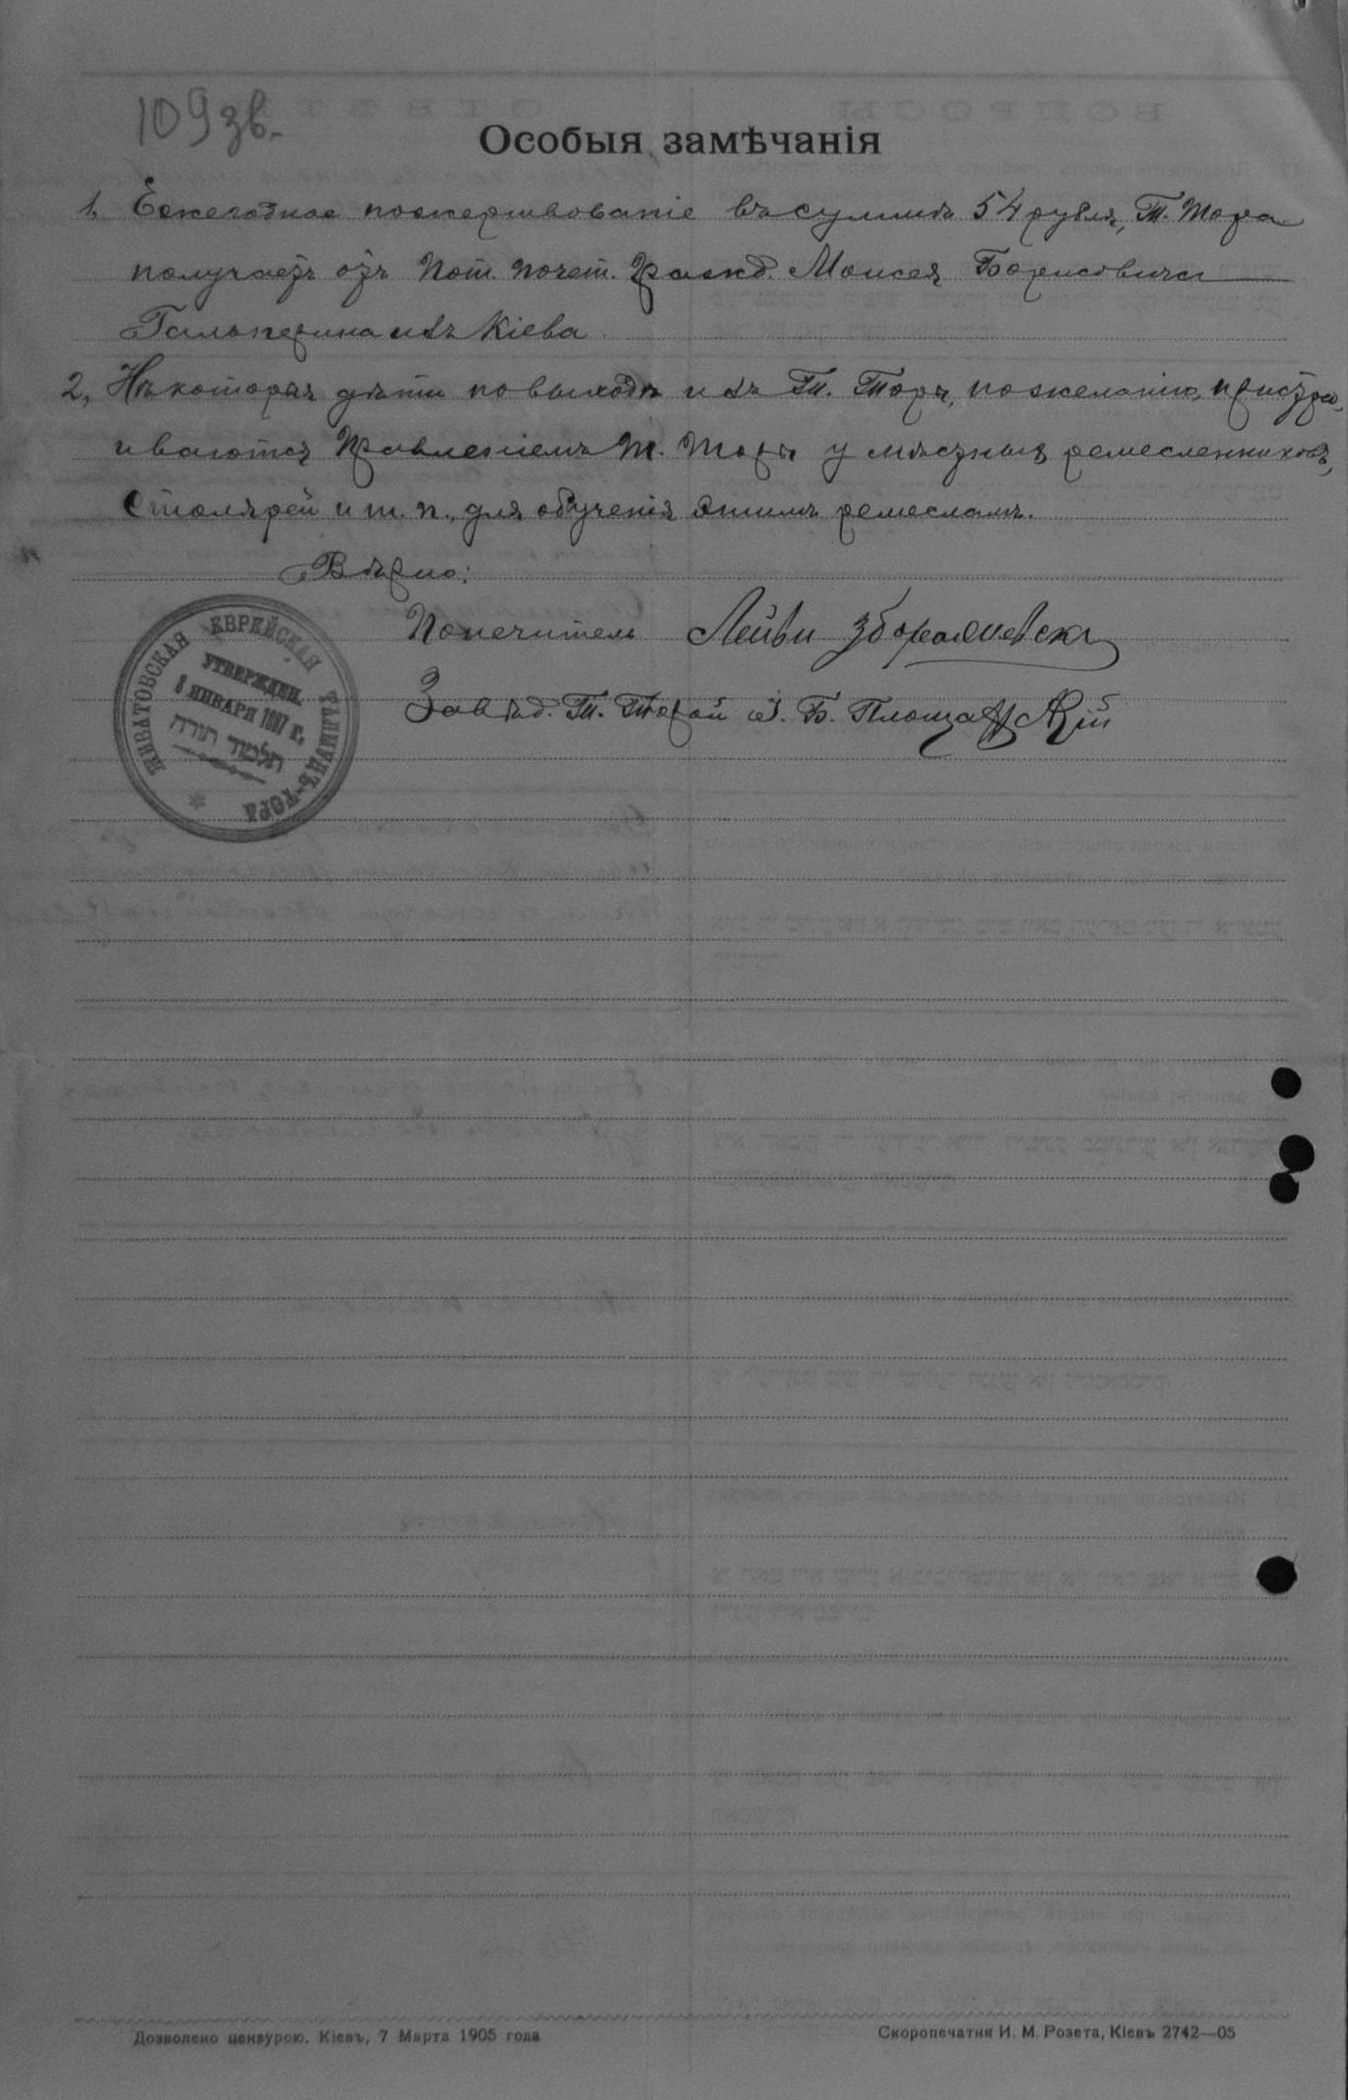 109 зв.
Особыя замѣчанія
1, Ежегодное пожертвованіе въ суммѣ 54 рубля, Т. Тора
получаетъ отъ Пот. почет. гражд. Моисея Борисовича
Гальперина изъ Кіева
2, Нѣкоторыя дѣти по выходѣ изъ Т. Торы, по желанію, пристра-
иваются Правленіемъ Т. Торы у мѣстныхъ ремесленниковъ,
Столярей и т. п., для обученія этимъ ремесламъ.
Вѣрно:
Попечитель Лейви
Завѣд. Т. Торой І. Б. Площадскій
ЖИВАТОВСКАЯ ЕВРЕЙСКАЯ ТАЛМУДЪ-ТОРА
УТВЕРЖДЕН.
8 ЯНВАРЯ 1897 г.
תלמוד תורה
Дозволено цензурою. Кіевъ, 7 Марта 1905 года
Скоропечатня И. М. Розета, Кіевъ 2742—05